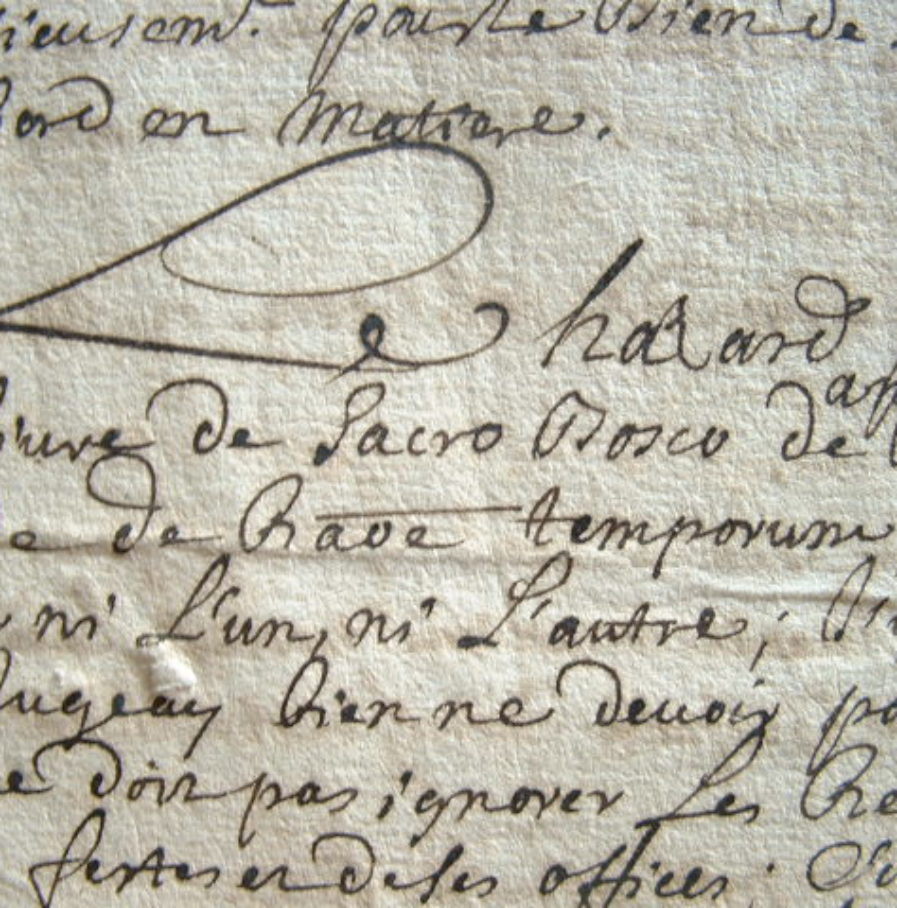 ieusemt. pour le Bien de
bord en Matiere.
Le hazard
livre de Sacro Bosco de
e de Rãõe temporum
ni L'un, ni L'autre;
Jugeay bien ne devoir pa
e doit pas ignorer Les Re
festes et de ses offices;